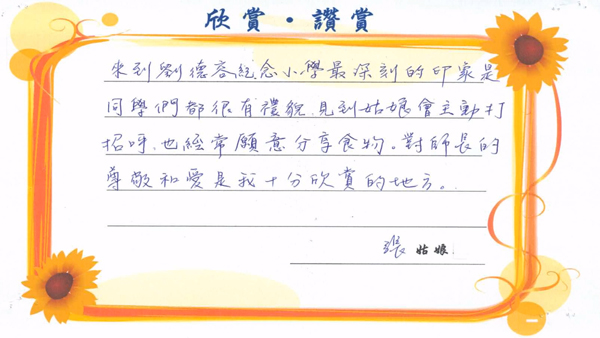 欣賞·讚賞
來到劉德容紀念小學最深刻的印象是
同學們都很有禮貌,見到姑娘會主動打
招呼,也經常願意分享食物。對師長的
尊敬和愛是我十分欣賞的地方。
張 姑娘